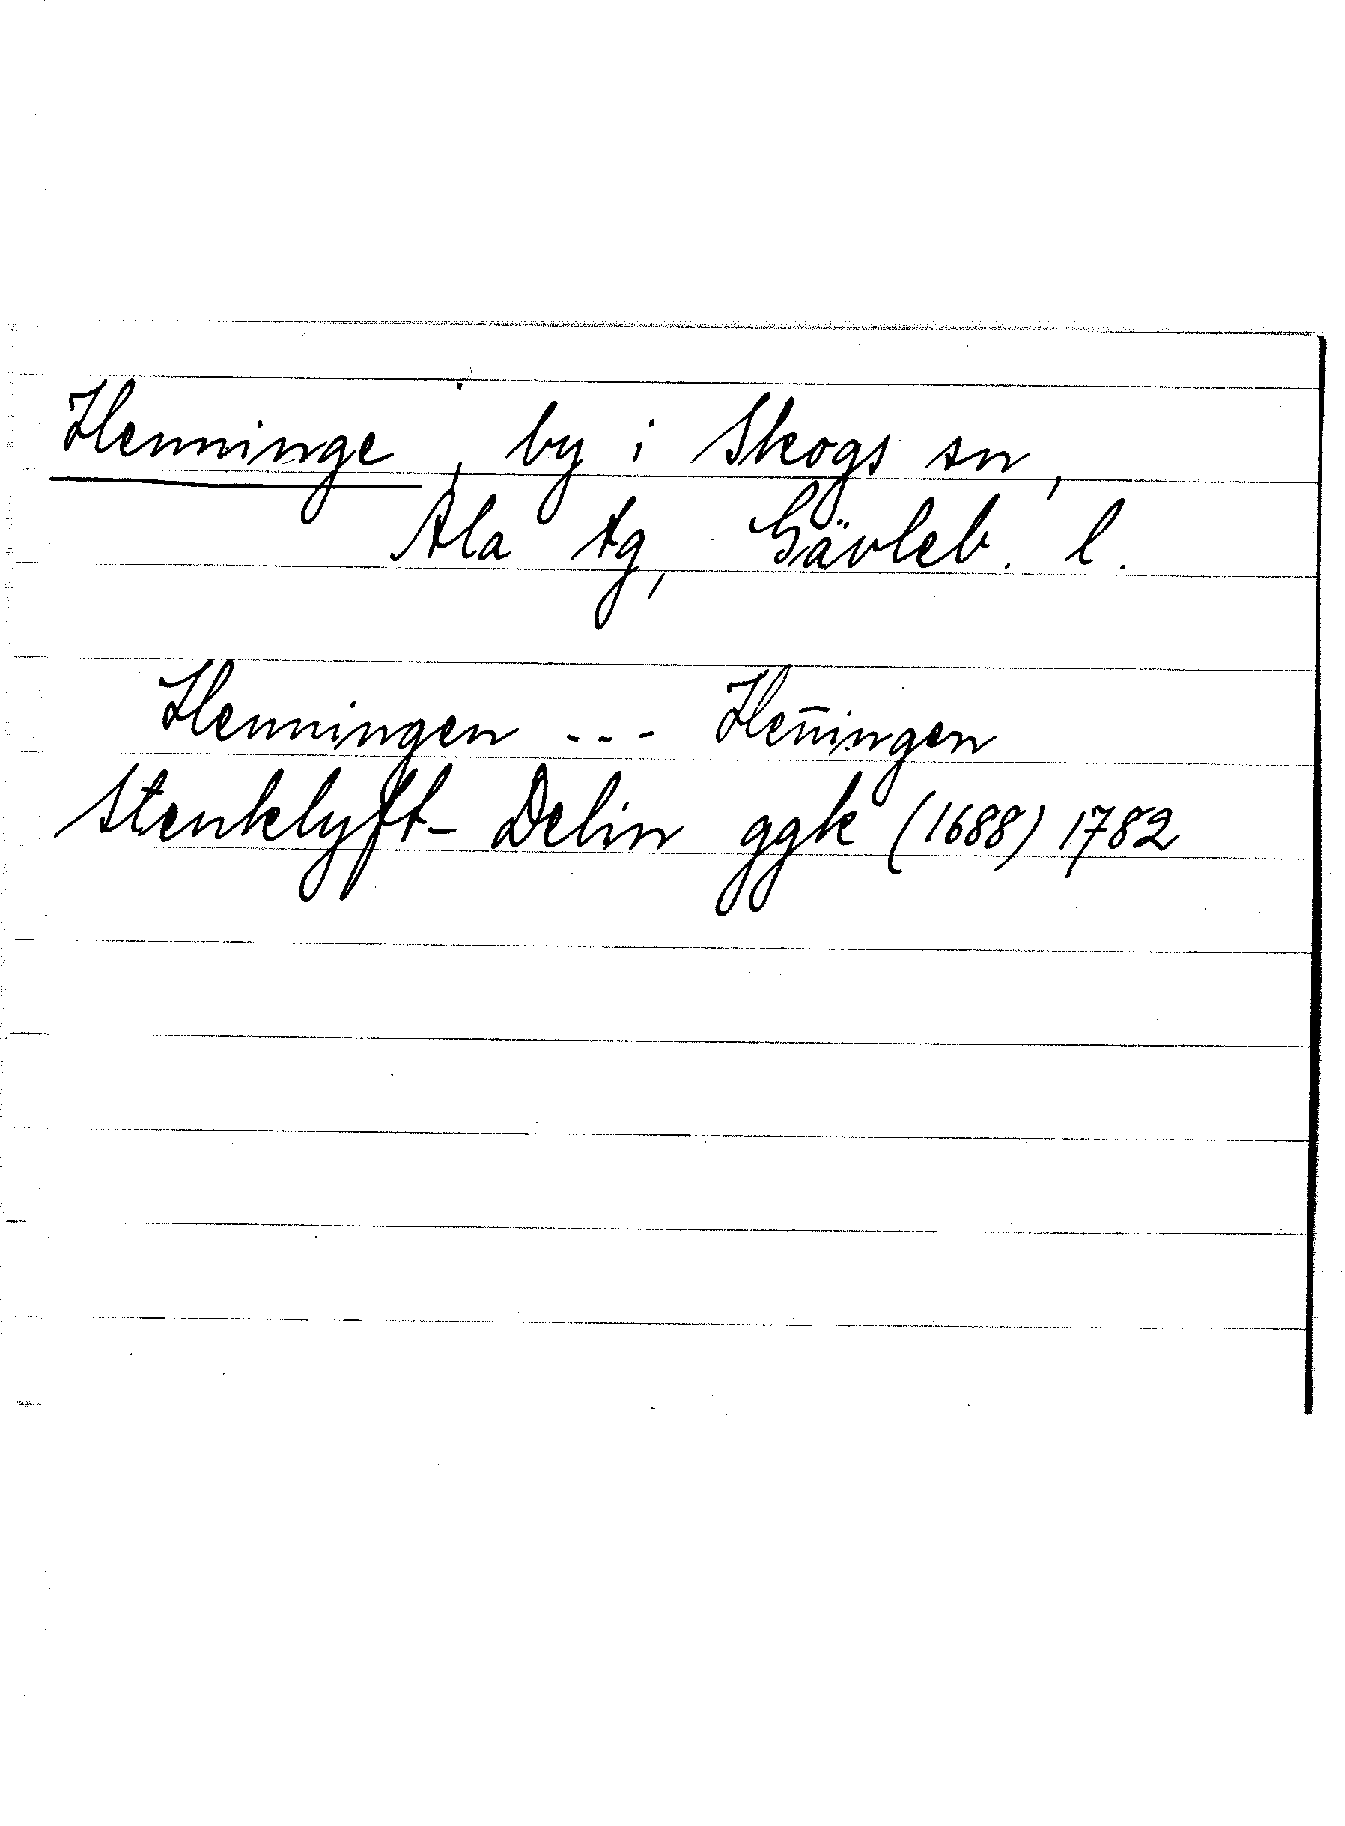 Henninge, by i Skogs sn,
Ala tg, Gävleb. l.
Henningen --- Hen̄ingen
Stenklyft- Delin ggk (1688) 1782